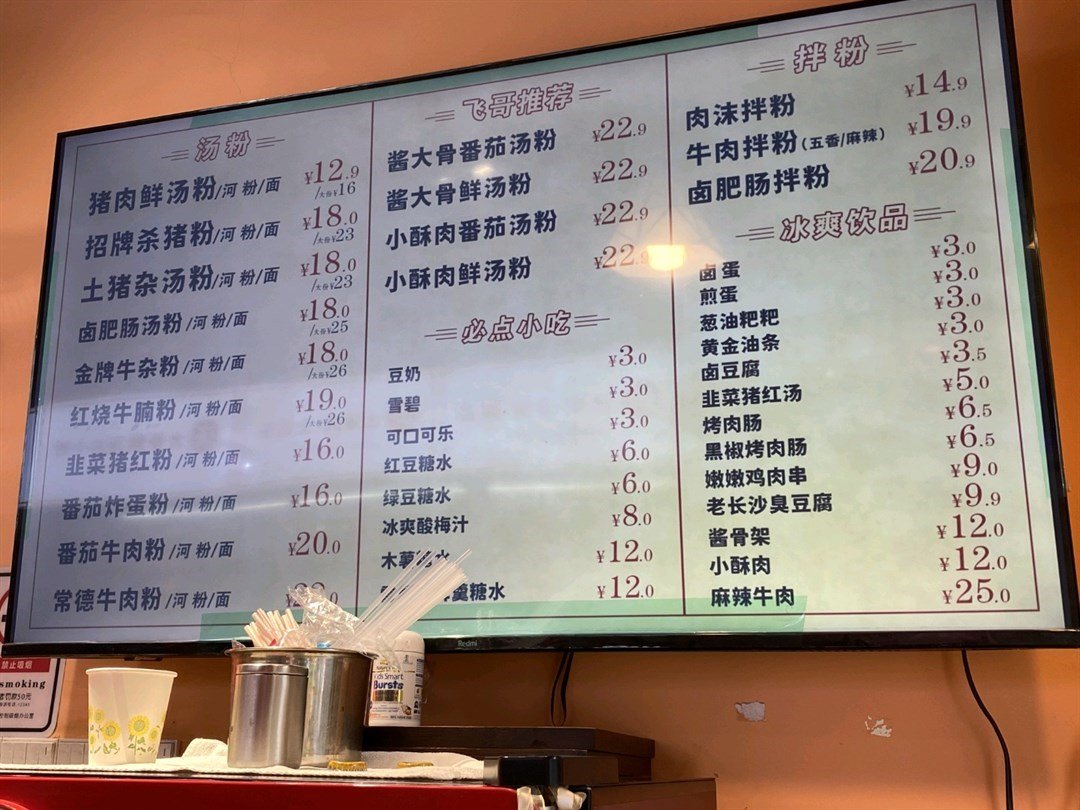 汤粉
猪肉鲜汤粉/河粉/面 ¥12.9
/大份¥16
招牌杀猪粉/河粉/面 ¥18.0
/大份¥23
土猪杂汤粉/河粉/面 ¥18.0
/大份¥23
卤肥肠汤粉/河粉/面 ¥18.0
/大份¥25
金牌牛杂粉/河粉/面 ¥18.0
/大份¥26
红烧牛腩粉/河粉/面 ¥19.0
/大份¥26
韭菜猪红粉/河粉/面 ¥16.0
番茄炸蛋粉/河粉/面 ¥16.0
番茄牛肉粉/河粉/面 ¥20.0
常德牛肉粉/河粉/面
飞哥推荐
酱大骨番茄汤粉 ¥22.9
酱大骨鲜汤粉 ¥22.9
小酥肉番茄汤粉 ¥22.9
小酥肉鲜汤粉 ¥22.9
必点小吃
豆奶 ¥3.0
雪碧 ¥3.0
可口可乐 ¥3.0
红豆糖水 ¥6.0
绿豆糖水 ¥6.0
冰爽酸梅汁 ¥8.0
木薯 水 ¥12.0
羹糖水 ¥12.0
拌粉
肉沫拌粉 ¥14.9
牛肉拌粉(五香/麻辣) ¥19.9
卤肥肠拌粉 ¥20.9
冰爽饮品
卤蛋 ¥3.0
煎蛋 ¥3.0
葱油粑粑 ¥3.0
黄金油条 ¥3.0
卤豆腐 ¥3.5
韭菜猪红汤 ¥5.0
烤肉肠 ¥6.5
黑椒烤肉肠 ¥6.5
嫩嫩鸡肉串 ¥9.0
老长沙臭豆腐 ¥9.9
酱骨架 ¥12.0
小酥肉 ¥12.0
麻辣牛肉 ¥25.0
Redmi
禁止吸烟
smoking
Kids Smart
Bursts